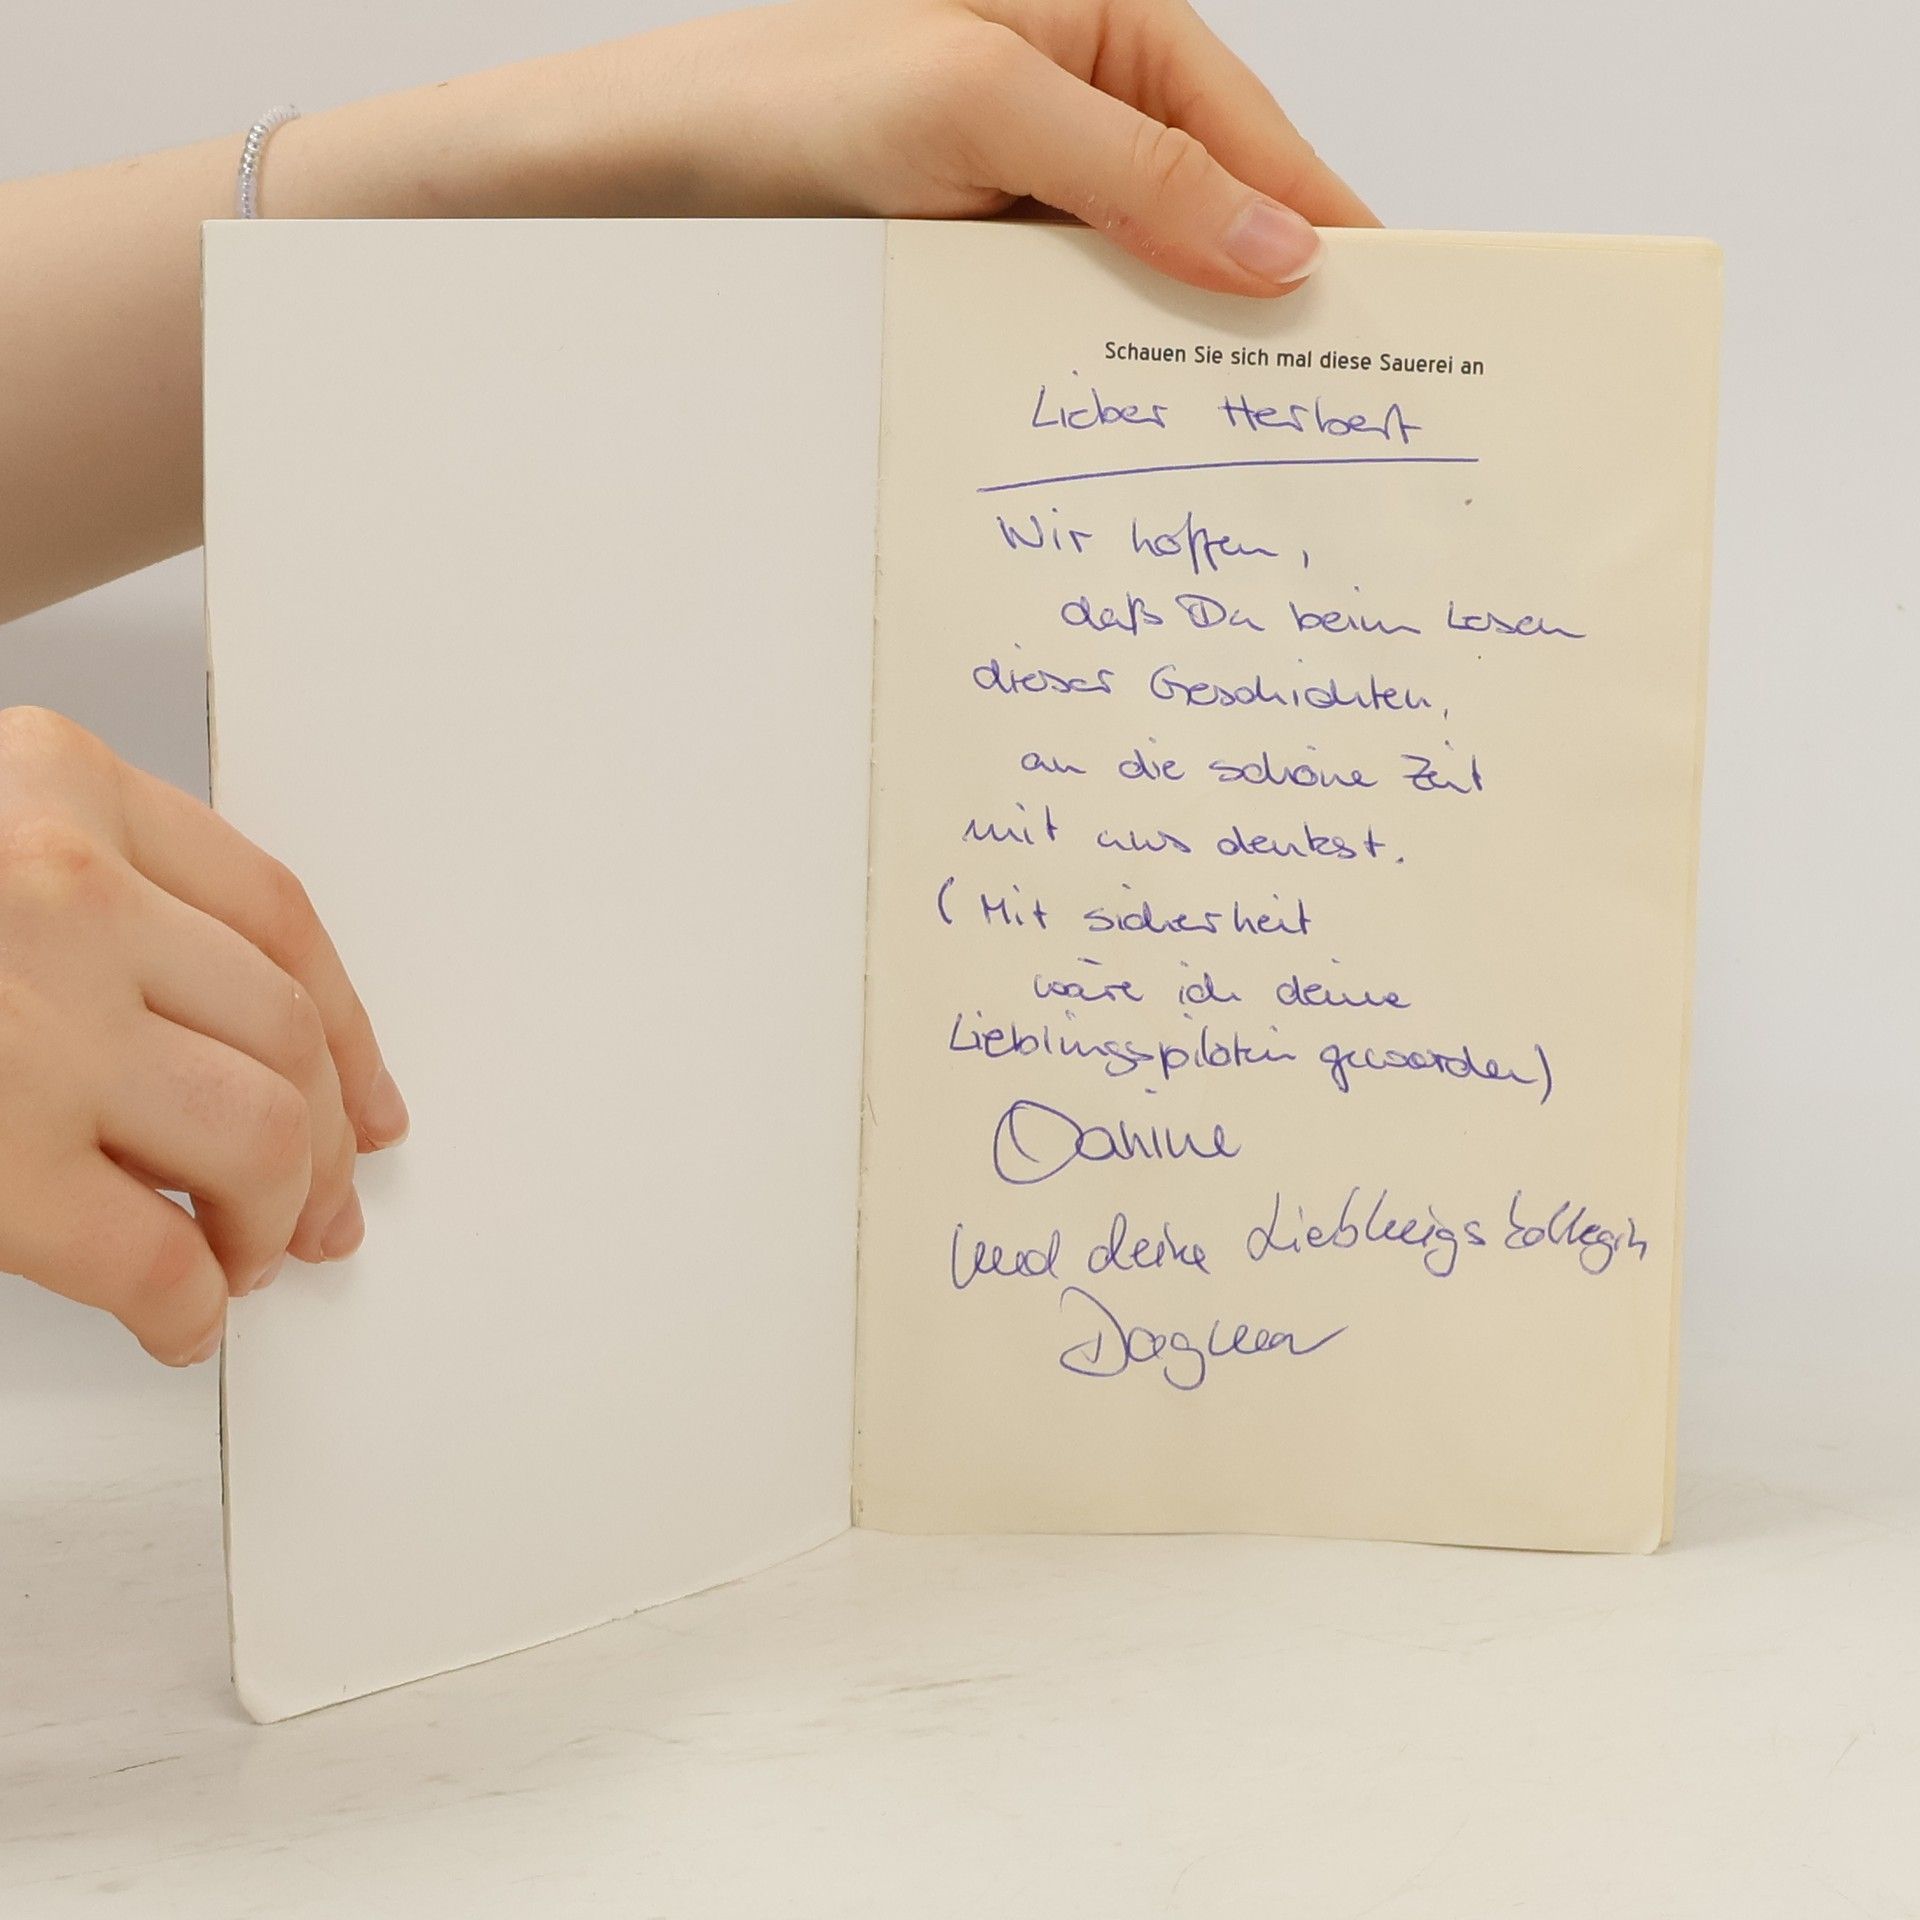 Schauen Sie sich mal diese Sauerei an
Lieber Herbert
Wir hoffen,
daß Du beim Lesen
dieser Geschichten,
an die schöne Zeit
mit uns denkst.
(Mit sicherheit
wäre ich deine
Lieblingspilotin geworden)
Janine
und deine Lieblingskollegin
Dagmar